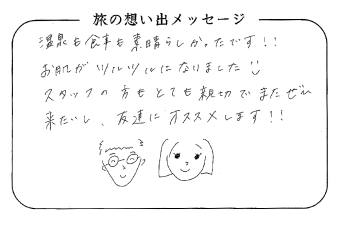 旅の想い出メッセージ
温泉も食事も素晴らしかったです!!
お肌がツルツルになりました
スタッフの方もとても親切でまたぜひ
来たいし、友達にオススメします!!